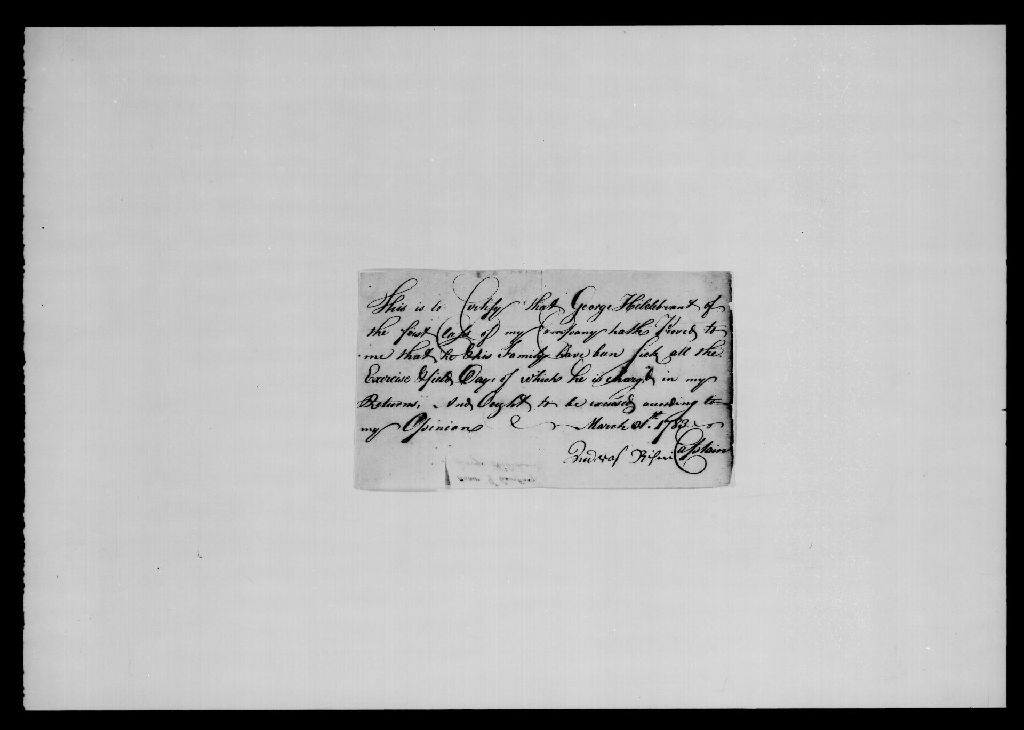 This is to Certify that George Hildebrant of
the first Class of my Company hath Proved to
me that he & his Family have ben sick all the
Exercise & field Days of which he is charg'd in my
Returns, And Ought to be excused according to
my Opinion March 31st. 1783
Captain